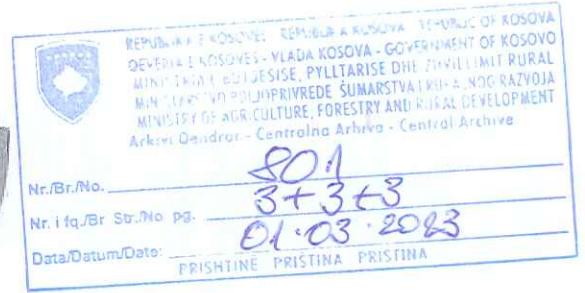 REPUBLIKA E KOSOVËS - REPUBLIKA KOSOVA - REPUBLIC OF KOSOVA
QEVERIA E KOSOVËS - VLADA KOSOVA - GOVERNMENT OF KOSOVO
MINISTRIA E BUJQËSISË, PYLLTARISË DHE ZHVILLIMIT RURAL
MINISTARSTVO POLJOPRIVREDE ŠUMARSTVA I RURALNOG RAZVOJA
MINISTRY OF AGRICULTURE, FORESTRY AND RURAL DEVELOPMENT
Arkivi Qendror - Centralna Arhiva - Central Archive
Nr./Br./No. 801
Nr. i fq./Br Str./No pg. 3+3+3
Data/Datum/Date: 01.03.2023
PRISHTINË PRIŠTINA PRISTINA